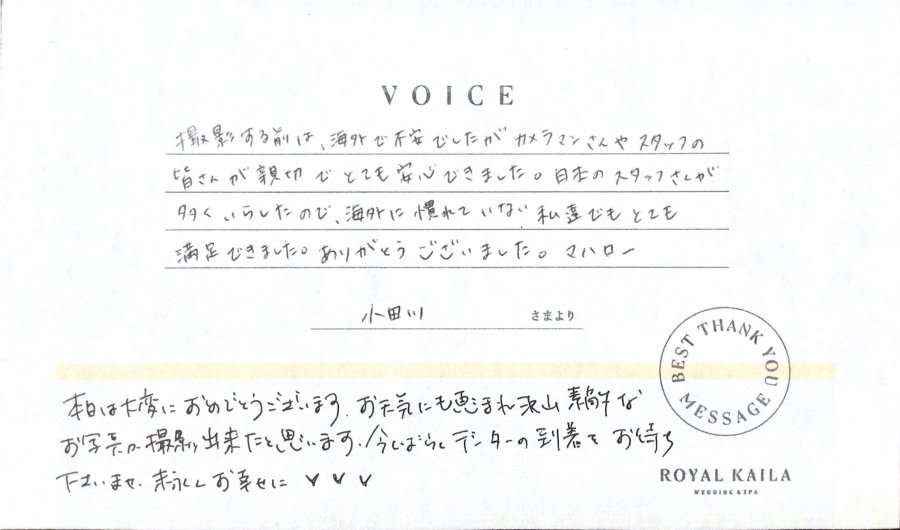 VOICE
撮影する前は、海外で不安でしたがカメラマンさんやスタッフの
皆さんが親切でとても安心できました。日本のスタッフさんが
多くいらしたので、海外に慣れていない私達でもとても
満足できました。ありがとうございました。マハロー
小田川 さまより
BEST THANK YOU MESSAGE
本日は大変におめでとうございます。お天気にも恵まれ沢山素敵な
お写真が撮影出来たと思います。今しばらくデーターの到着をお待ち
下さいませ。末永くお幸せに
ROYAL KAILA
WEDDING & SPA